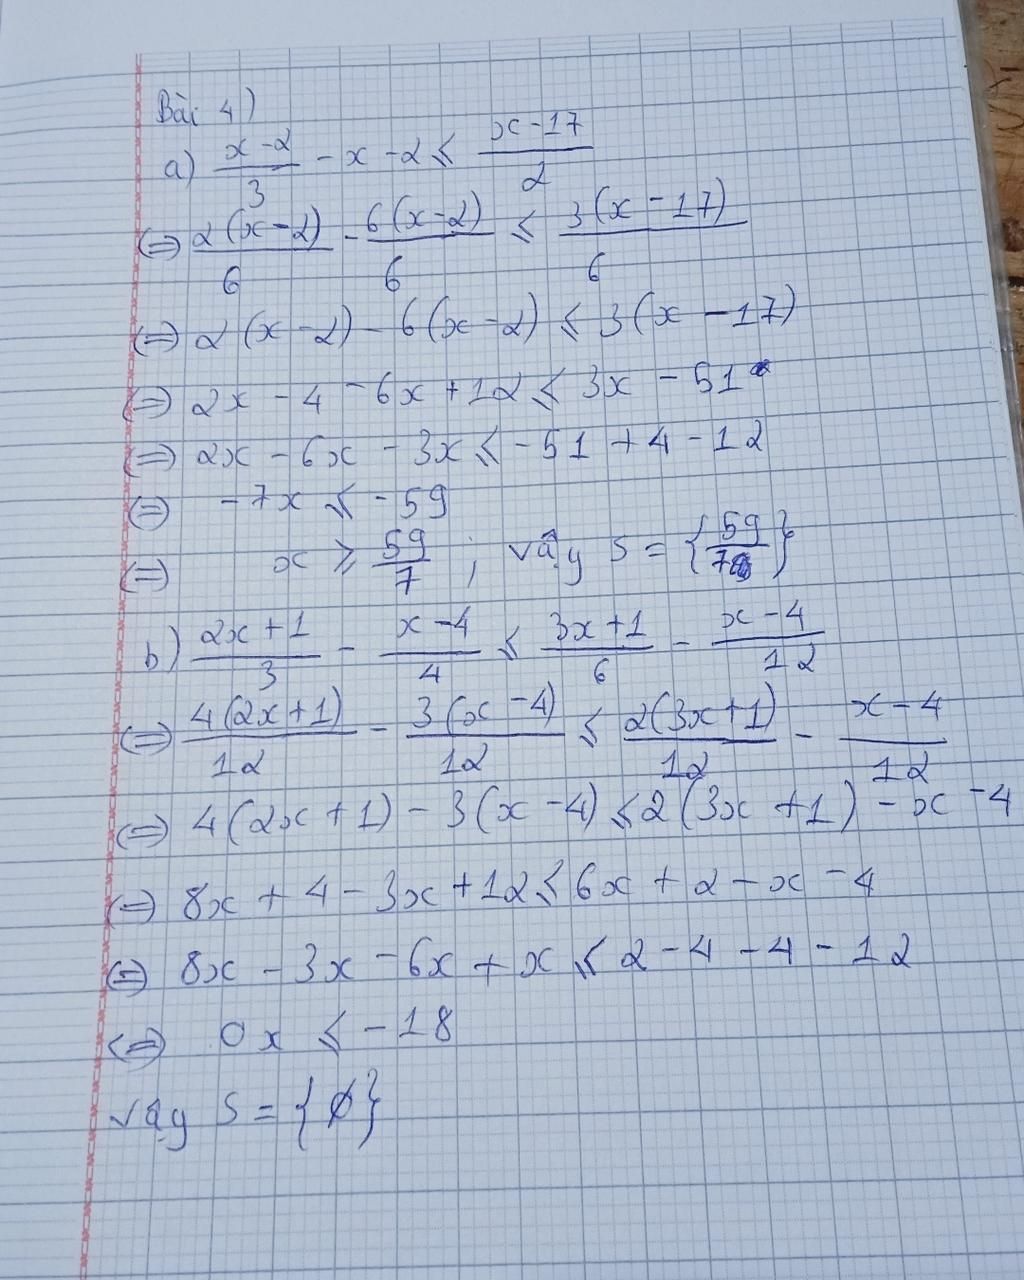 Bài 4)
a) (x-2)/3 - x - 2 ≤ (x-17)/2
(=) 2(x-2)/6 - 6(x-2)/6 ≤ 3(x-17)/6
(=) 2(x-2) - 6(x-2) ≤ 3(x-17)
(=) 2x - 4 - 6x + 12 ≤ 3x - 51
(=) 2x - 6x - 3x ≤ -51 + 4 - 12
(=) -7x ≤ -59
(=) x ≥ 59/7 ; vậy S = {59/7}
b) (2x+1)/3 - (x-4)/4 ≤ (3x+1)/6 - (x-4)/12
(=) 4(2x+1)/12 - 3(x-4)/12 ≤ 2(3x+1)/12 - (x-4)/12
(=) 4(2x+1) - 3(x-4) ≤ 2(3x+1) - x - 4
(=) 8x + 4 - 3x + 12 ≤ 6x + 2 - x - 4
(=) 8x - 3x - 6x + x ≤ 2 - 4 - 4 - 12
(=) 0x ≤ -18
vậy S = {∅}